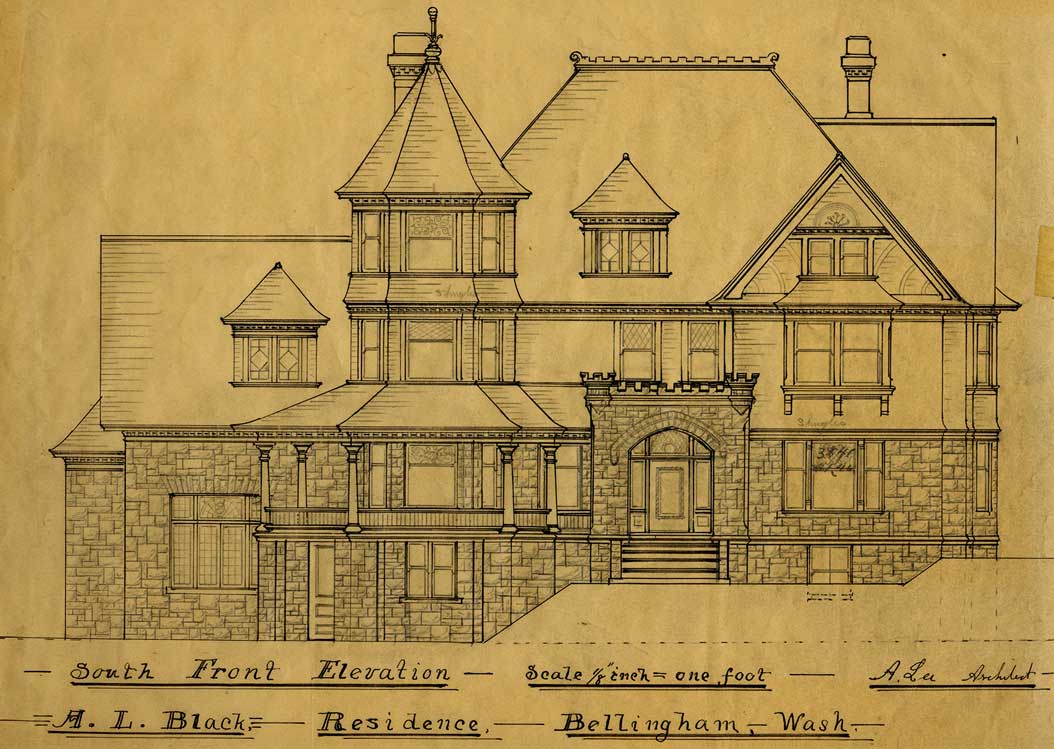 Shingles
Shingles
South Front Elevation — Scale 1/8" inch = one foot — A. Lee Architect
A. L. Black, — Residence, — Bellingham, — Wash.